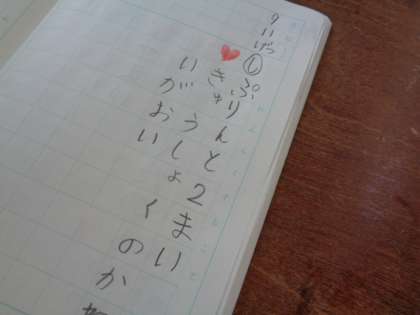 9
11
げつ
し ぷりんと2まい
♥ きゅうしょくのか
いがおい